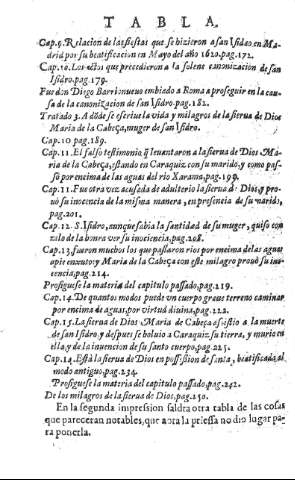 TABLA.
Cap.9. Relacion de las fiestas que se hizieron a san Isidro en Ma-
drid por su beatificacion en Mayo del año 1620.pag.172.
Cap.10. Los actos que precedieron a la solene canonizacion de san
Isidro.pag.179.
Fue don Diego Barrionueuo embiado a Roma a proseguir en la cau-
sa de la canonizacion de san Isidro.pag.182.
Tratado 3. A dõde se escriue la vida y milagros de la sierua de Dios
Maria de la Cabeça, muger de san Isidro.
Cap.10 pag.189.
Cap.11. El falso testimonio q̃ leuantaron a la sierua de Dios Ma-
ria de la Cabeça, estando en Caraquiz con su marido, y como pas-
sò por encima de las aguas del rio Xarama.pag.199.
Cap.11. Fue otra vez acusada de adulterio la sierua d. Dios, y pro-
uò su inocencia de la misma manera, en presencia de su marido,
pag.201.
Cap.12. S. Isidro, aunque sabia la santidad de su muger, quiso con
zelo de la honra ver su inocencia.pag.208.
Cap.13. fueron muchos los que passaron rios por encima de las aguas
a pie enxuto, y Maria de la Cabeça con este milagro prouò su ino-
cencia.pag.214.
Prosiguese la materia del capitulo passado.pag.219.
Cap.14. De quantos modos puede vn cuerpo graue terreno caminar
por encima de aguas por virtud diuina.pag.222.
Cap.15. La sierua de Dios Maria de Cabeça assistio a la muerte
de san Isidro y despues se boluio a Caraquiz su tierra, y murio en
ella, y de la inuencion de su santo cuerpo.pag.225.
Cap.14. Està la sierua de Dios en possession de santa, beatificada al
modo antiguo.pag.234.
Prosiguese la materia del capitulo passado.pag.242.
De los milagros de la sierua de Dios.pag.250.
En la segunda impression saldra otra tabla de las cosas
que pareceran notables, que aora la priessa no dio lugar pa-
ra ponerla.